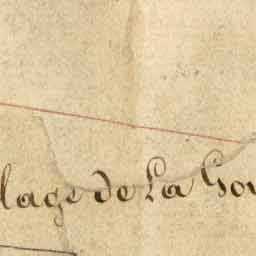 lage de La Gou